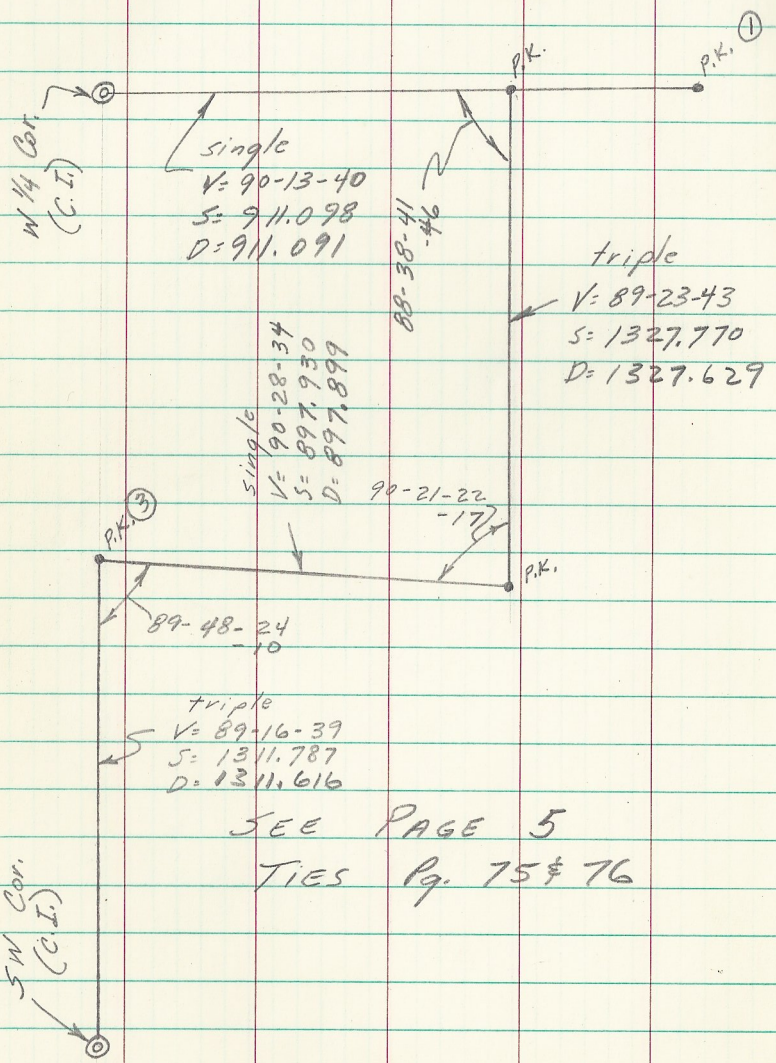 ①
P.K.
P.K.
W 1/4 Cor.
(C.I.)
single
V= 90-13-40
S= 911.098
D= 911.091
88-38-41
-46
triple
V= 89-23-43
S= 1327.770
D= 1327.629
single
V= 90-28-34
S= 897.930
D= 897.899
90-21-22
-17
P.K. ③
P.K.
89-48-24
-10
triple
V= 89-16-39
S= 1311.787
D= 1311.616
SEE PAGE 5
TIES Pg. 75 & 76
SW Cor.
(C.I.)